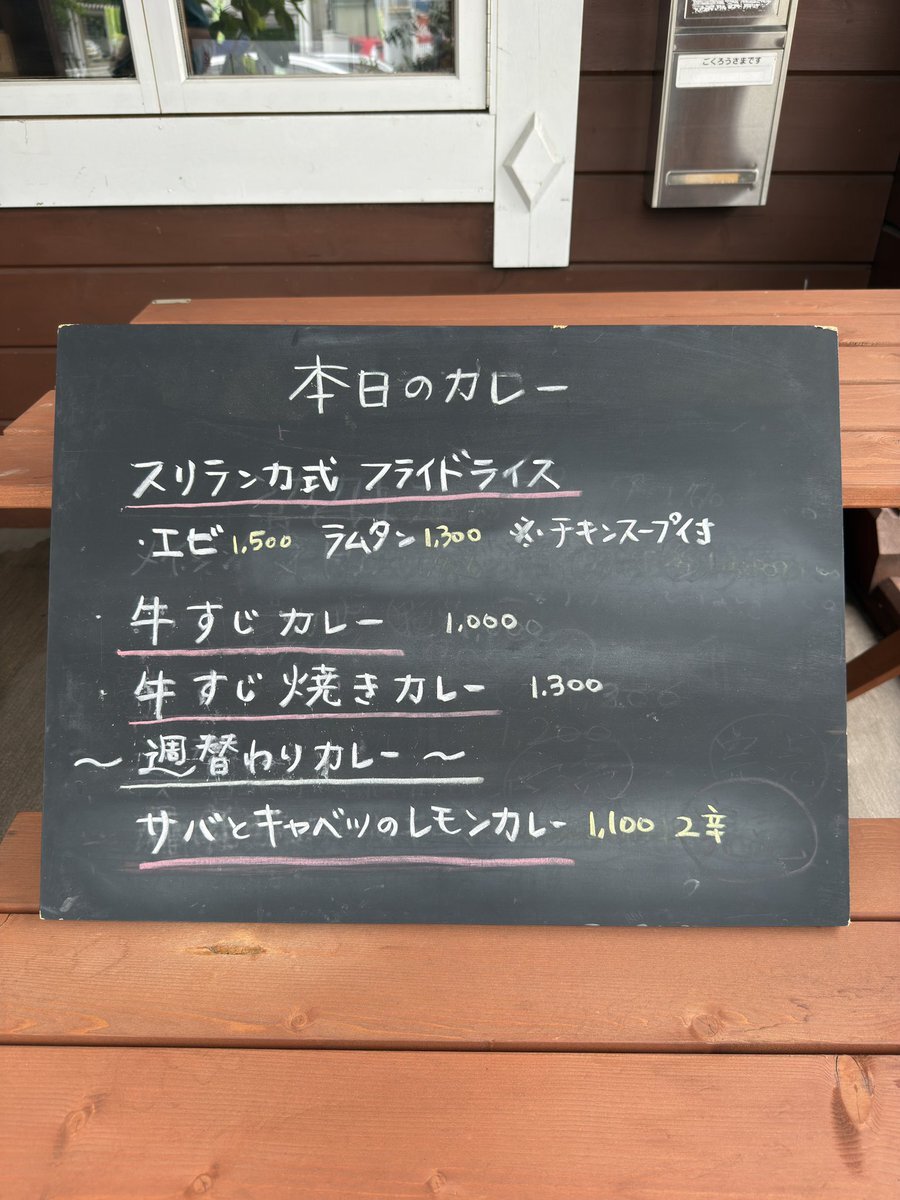 ごくろうさまです
本日のカレー
スリランカ式 フライドライス
・エビ 1,500 ラムタン 1,300 ※・チキンスープ付
・牛すじカレー 1,000
・牛すじ焼きカレー 1.300
〜週替わりカレー〜
サバとキャベツのレモンカレー 1,100 2辛